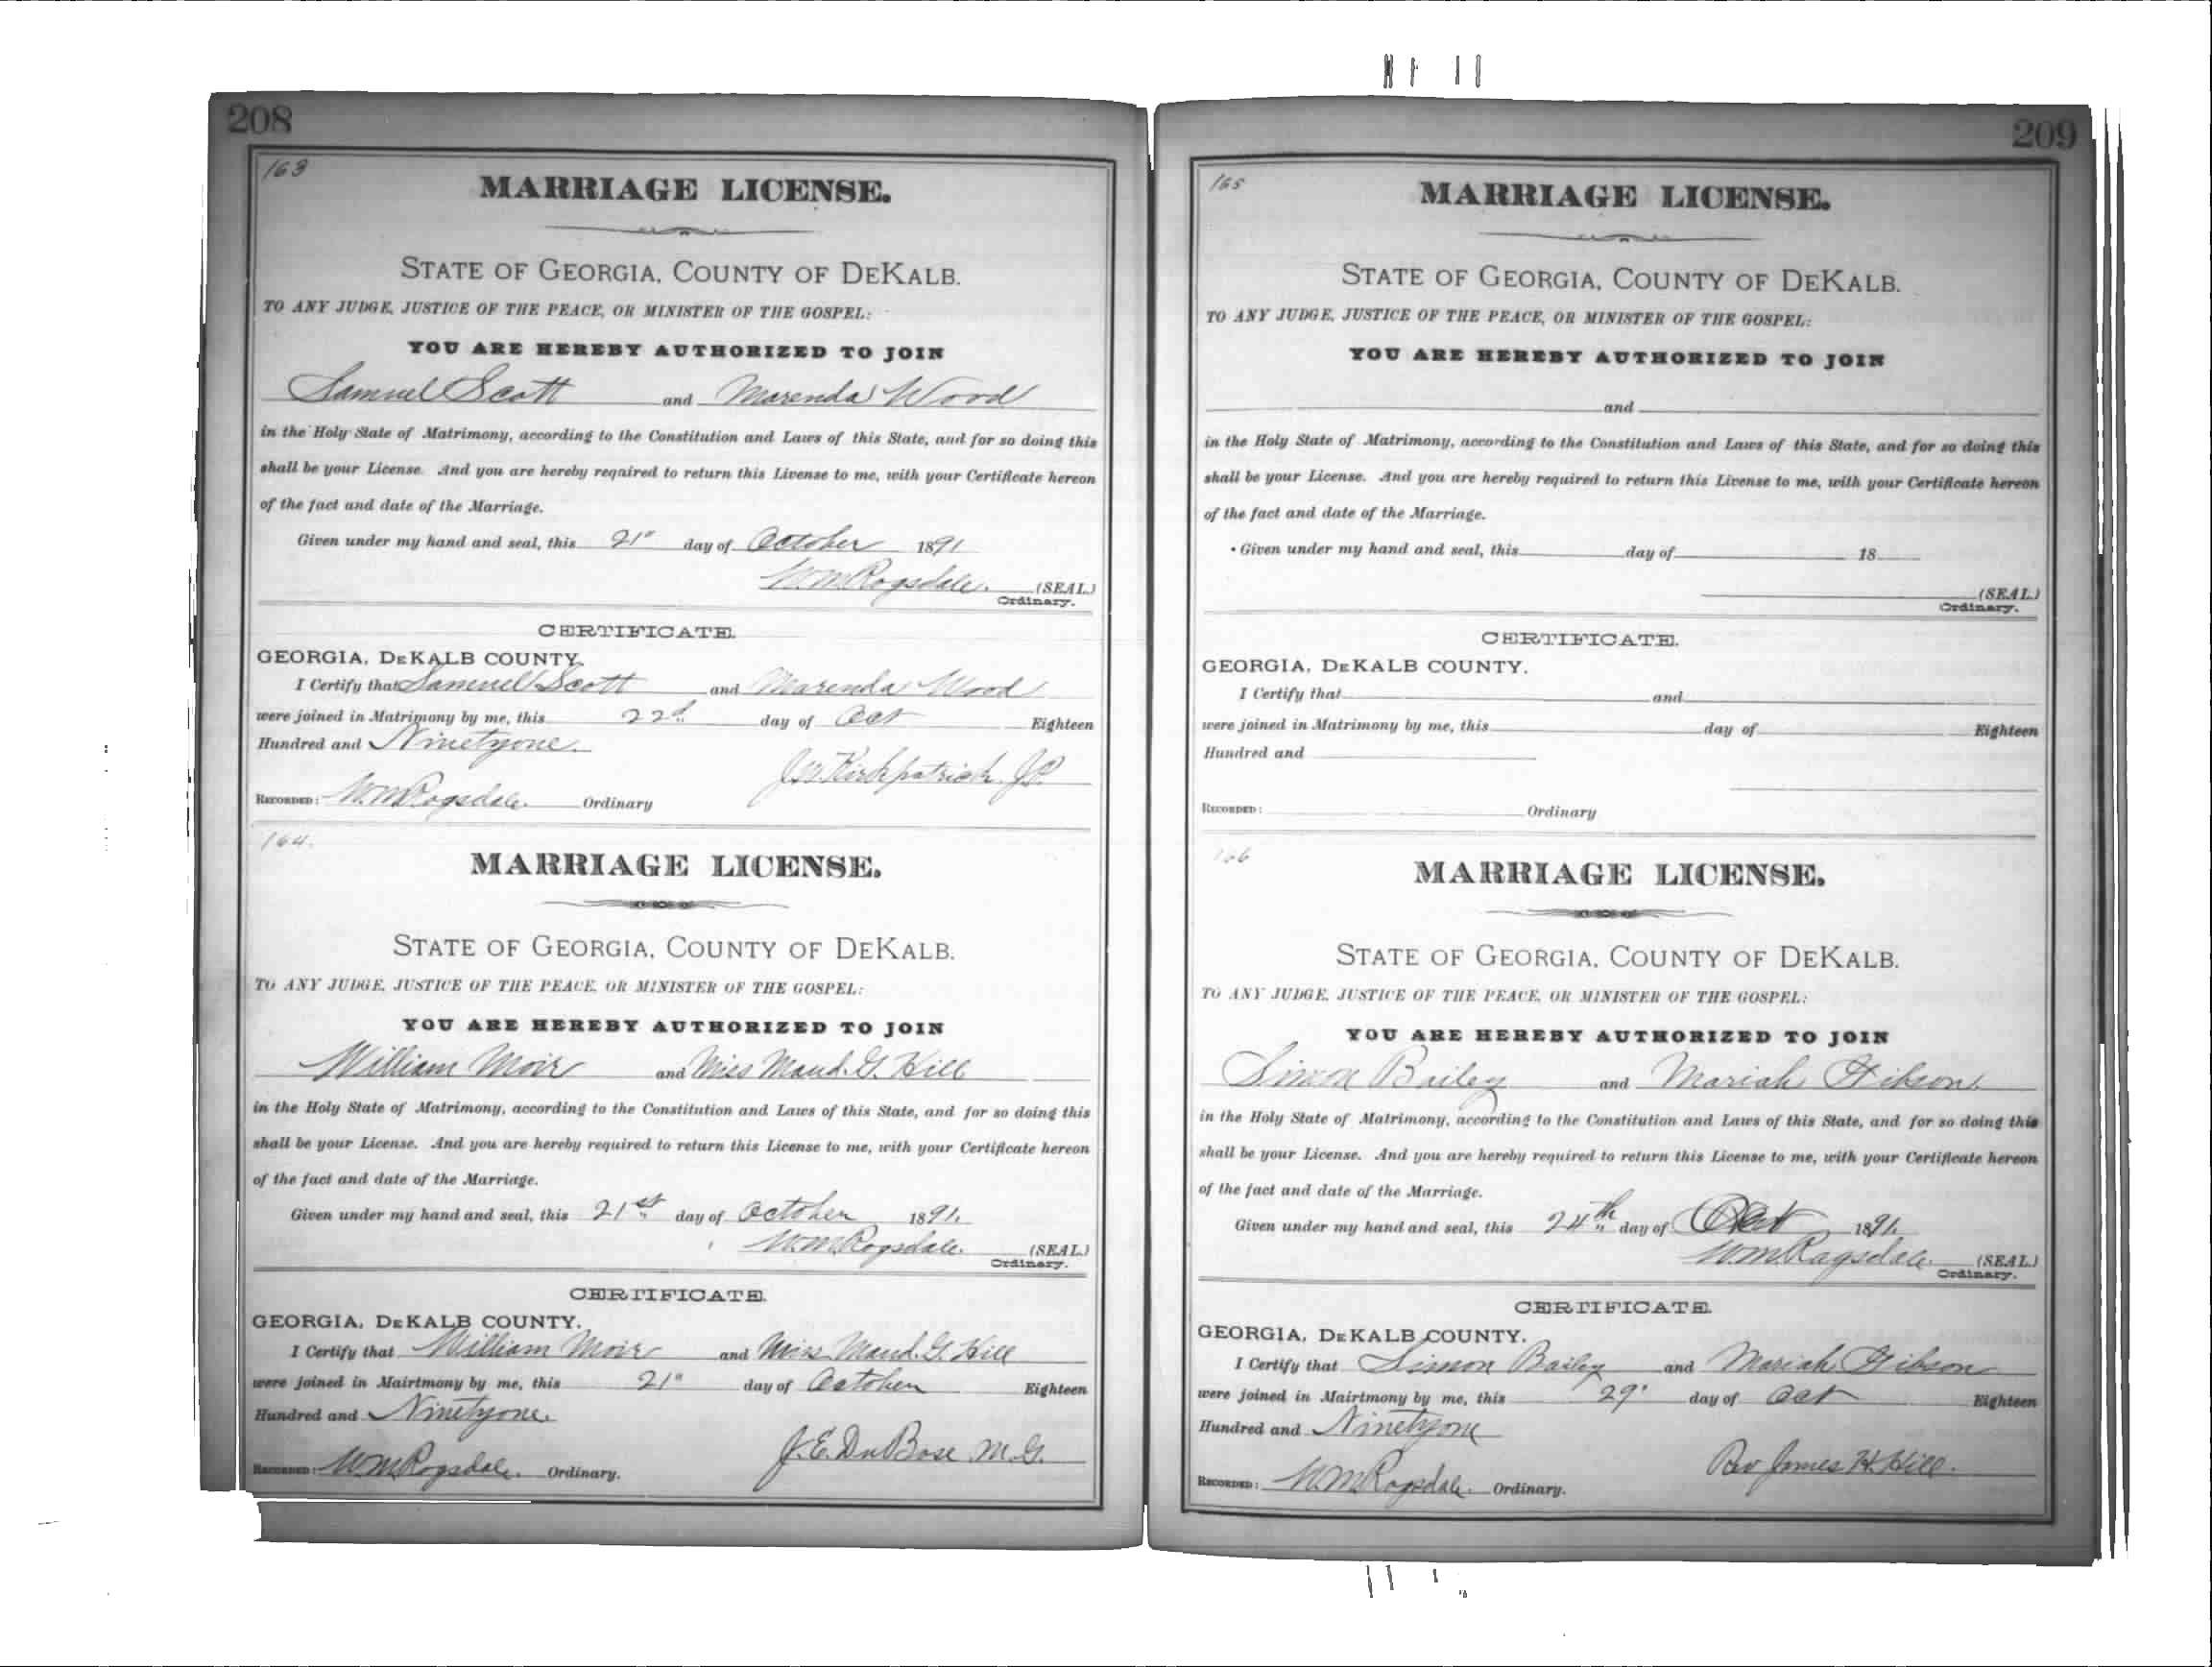 208
163
MARRIAGE LICENSE.
STATE OF GEORGIA, COUNTY OF DEKALB.
TO ANY JUDGE, JUSTICE OF THE PEACE, OR MINISTER OF THE GOSPEL:
YOU ARE HEREBY AUTHORIZED TO JOIN
Samuel Scott and Marenda Wood
in the Holy State of Matrimony, according to the Constitution and Laws of this State, and for so doing this
shall be your License. And you are hereby required to return this License to me, with your Certificate hereon
of the fact and date of the Marriage.
Given under my hand and seal, this 21" day of October 1891
W.M. Ragsdale. (SEAL)
Ordinary.
CERTIFICATE.
GEORGIA, DEKALB COUNTY.
I Certify that Samuel Scott and Marenda Wood
were joined in Matrimony by me, this 22d day of Oct Eighteen
Hundred and Ninetyone.
Kirkpatrick J.P.
RECORDED: W.M. Ragsdale. Ordinary
164.
MARRIAGE LICENSE.
STATE OF GEORGIA, COUNTY OF DEKALB.
TO ANY JUDGE, JUSTICE OF THE PEACE, OR MINISTER OF THE GOSPEL:
YOU ARE HEREBY AUTHORIZED TO JOIN
William Moir and Miss Maud. G. Hill
in the Holy State of Matrimony, according to the Constitution and Laws of this State, and for so doing this
shall be your License. And you are hereby required to return this License to me, with your Certificate hereon
of the fact and date of the Marriage.
Given under my hand and seal, this 21st day of October 1891.
W.M. Ragsdale. (SEAL)
Ordinary.
CERTIFICATE.
GEORGIA, DEKALB COUNTY.
I Certify that William Moir and Miss Maud. G. Hill
were joined in Mairtmony by me, this 21" day of October Eighteen
Hundred and Ninetyone.
J.E. DuBose. M.G.
RECORDED: W.M. Ragsdale. Ordinary.
209
165
MARRIAGE LICENSE.
STATE OF GEORGIA, COUNTY OF DEKALB.
TO ANY JUDGE, JUSTICE OF THE PEACE, OR MINISTER OF THE GOSPEL:
YOU ARE HEREBY AUTHORIZED TO JOIN
and
in the Holy State of Matrimony, according to the Constitution and Laws of this State, and for so doing this
shall be your License. And you are hereby required to return this License to me, with your Certificate hereon
of the fact and date of the Marriage.
Given under my hand and seal, this day of 18
(SEAL)
Ordinary.
CERTIFICATE.
GEORGIA, DEKALB COUNTY.
I Certify that and
were joined in Matrimony by me, this day of Eighteen
Hundred and
RECORDED: Ordinary
166
MARRIAGE LICENSE.
STATE OF GEORGIA, COUNTY OF DEKALB.
TO ANY JUDGE, JUSTICE OF THE PEACE, OR MINISTER OF THE GOSPEL:
YOU ARE HEREBY AUTHORIZED TO JOIN
Simon Bailey and Mariah Gibson.
in the Holy State of Matrimony, according to the Constitution and Laws of this State, and for so doing this
shall be your License. And you are hereby required to return this License to me, with your Certificate hereon
of the fact and date of the Marriage.
Given under my hand and seal, this 24th day of Oct 1891.
W.M. Ragsdale. (SEAL)
Ordinary.
CERTIFICATE.
GEORGIA, DEKALB COUNTY.
I Certify that Simon Bailey and Mariah Gibson
were joined in Mairtmony by me, this 29" day of Oct Eighteen
Hundred and Ninetyone
Rev James H. Hill.
RECORDED: W.M. Ragsdale. Ordinary.